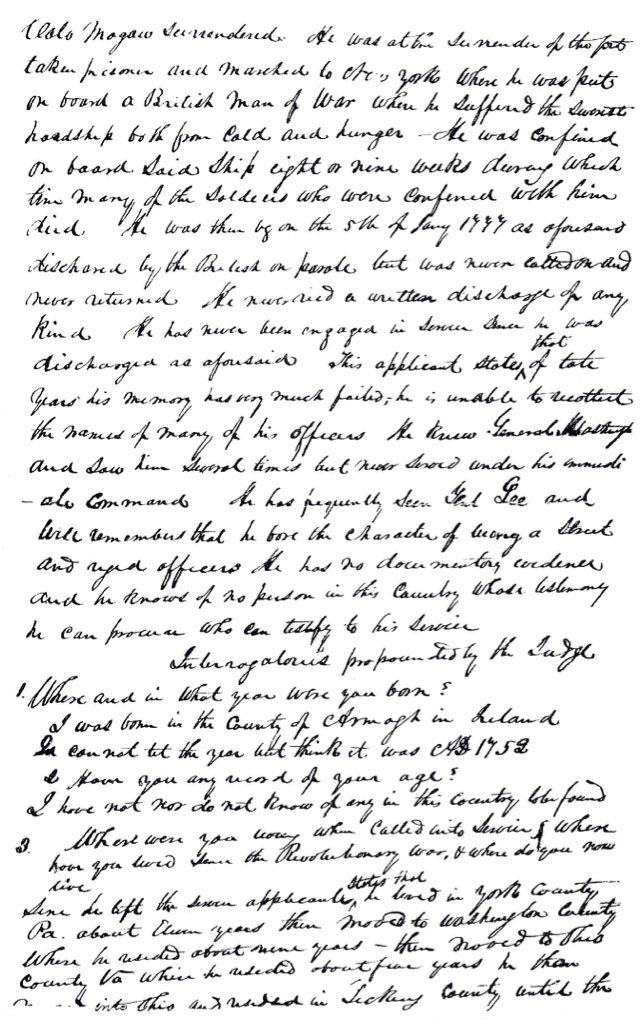 Colo Magaw Surrendered. He was at the Surrender of the fort
taken prisoner and marched to New york where he was put
on board a British Man of War where he Suffered the Severest
hardship both from Cold and hunger - He was Confined
on board Said Ship eight or nine weeks during which
time many of the Soldiers who were Confined with him
died. He was then on the 5th of Jany 1777 as aforesaid
dischared by the British on parole but was never called on and
never returned He never a written discharge of any
Kind He has never been engaged in Service Since he was
that
discharged as aforesaid This applicant States, of late
years his memory has very much failed, he is unable to recollect
the names of many of his officers He Knew General
and Saw him Several times but never Served under his immedi
- ate Command He has frequently Seen Genl Lee and
Well remembers that he bore the Character of being a Strict
and officers He has no documentary evidence
and he Knows of no person in this Country whose testimony
he can procure who can testify to his Service
Interrogatories propounded by the Judge
1. Where and in what year were you born?
I was born in the County of Armagh in Ireland
can not tel the year but think it was AD 1752
2 Have you any record of your age?
I have not nor do not Know of any in this Country to be found
3. Where were you when Called into Service & Where
have you lived Since the Revolutionary War, & where do you now
live
States that
Sine he left the Service applicant, he lived in york County
Pa. about years then Moved to Washington County
Where he resided about nine years - then Moved to Ohio
County Va Where he resided about years he then
into Ohio and resided in Licking County until the